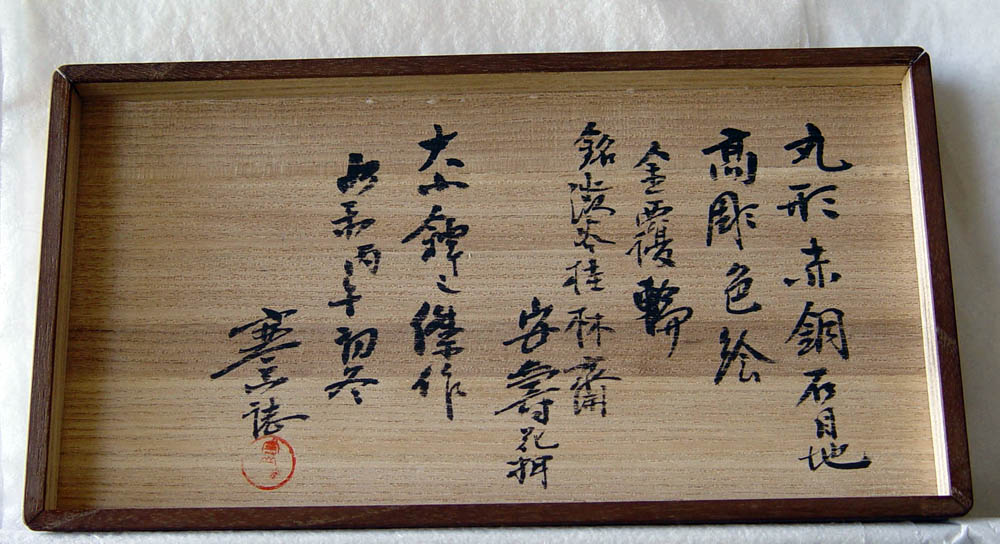 丸形赤銅石目地
高彫色絵
金覆輪
銘 桂林斎
安寿花押
大小鐔之傑作
昭和丙午初冬
寒山誌